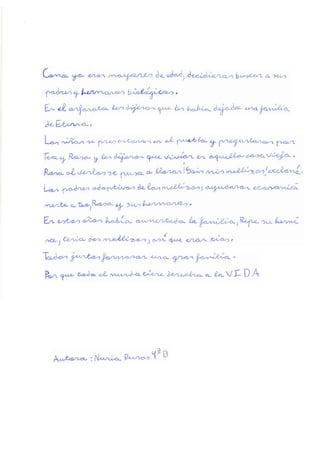 Como ya eran mayores de edad, decidieron buscar a sus
padres y hermanos biológicos.
En el orfanato les dijeron que les había dejado una familia
de Etiopía.
Los niños se presentaron en el pueblo y preguntaron por
Teo y Rosa y les dijeron que vivían en aquella casa vieja.
Rosa al verlos se puso a llorar ¡Sois mis mellizos! exclamó.
Los padres adoptivos de los mellizos, ayudaron económica
mente a Teo, Rosa y sus hermanos.
En estos años había aumentado la familia, Pepe su herma
no, tenía dos mellizos, así que eran tíos.
Todos juntos formaron una gran familia.
Por que todo el mundo tiene derecho a la VIDA
Autora: Nuria 4º B